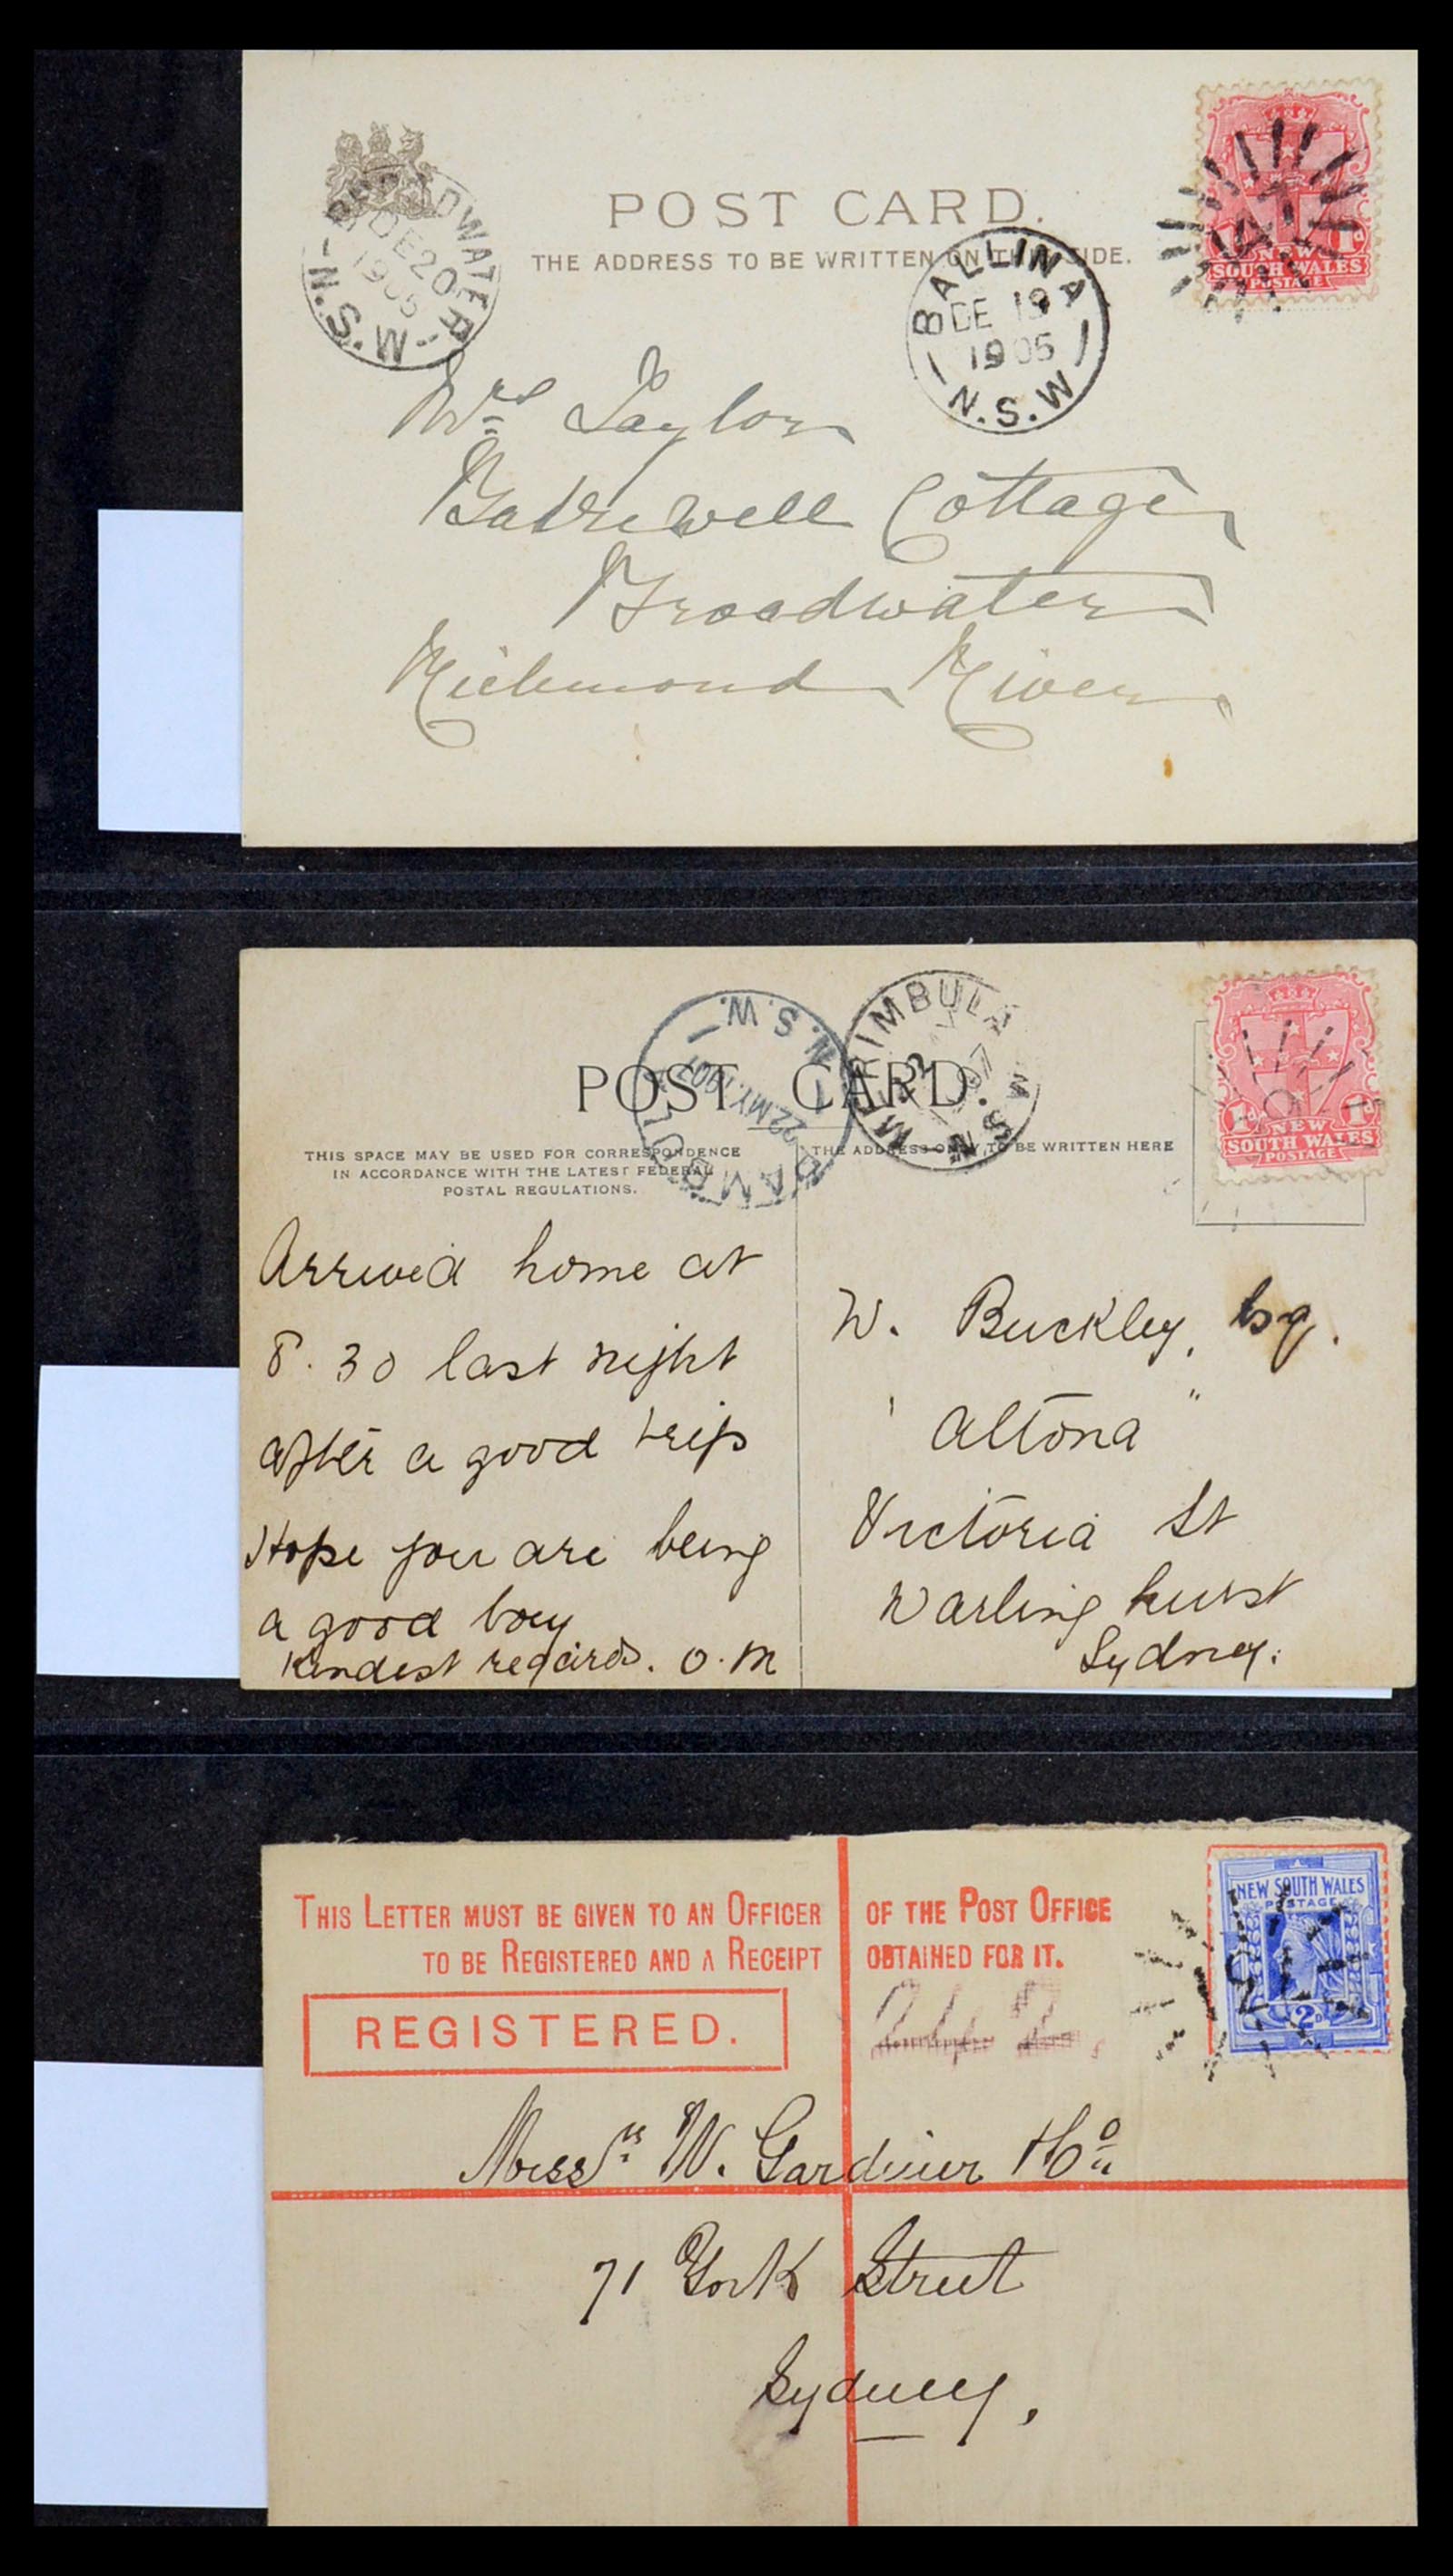 POST CARD.
THE ADDRESS TO BE WRITTEN ON THIS SIDE.
BROADWATER
DE 20
1905
N.S.W
BALLINA
DE 19
1905
N.S.W
1d 1d
NEW
SOUTH WALES
POSTAGE
Mrs Taylor
Cottage
Broadwater
Richmond River
POST CARD.
N.S.W.
22 MY 1907
PAMBULA
MERIMBULA
N.S.W
THIS SPACE MAY BE USED FOR CORRESPONDENCE
IN ACCORDANCE WITH THE LATEST FEDERAL
POSTAL REGULATIONS.
THE ADDRESS ONLY TO BE WRITTEN HERE
1d 1d
NEW
SOUTH WALES
POSTAGE
Arrived home at
8.30 last night
after a good trip
Hope you are being
a good boy
Kindest regards. O.M
W. Buckley, Esq.
"Altona"
Victoria St
Darlinghurst
Sydney.
THIS LETTER MUST BE GIVEN TO AN OFFICER OF THE POST OFFICE
TO BE REGISTERED AND A RECEIPT OBTAINED FOR IT.
REGISTERED.
242.
NEW SOUTH WALES
POSTAGE
2D
Messrs W. Gardiner & Co
71 York Street
Sydney,